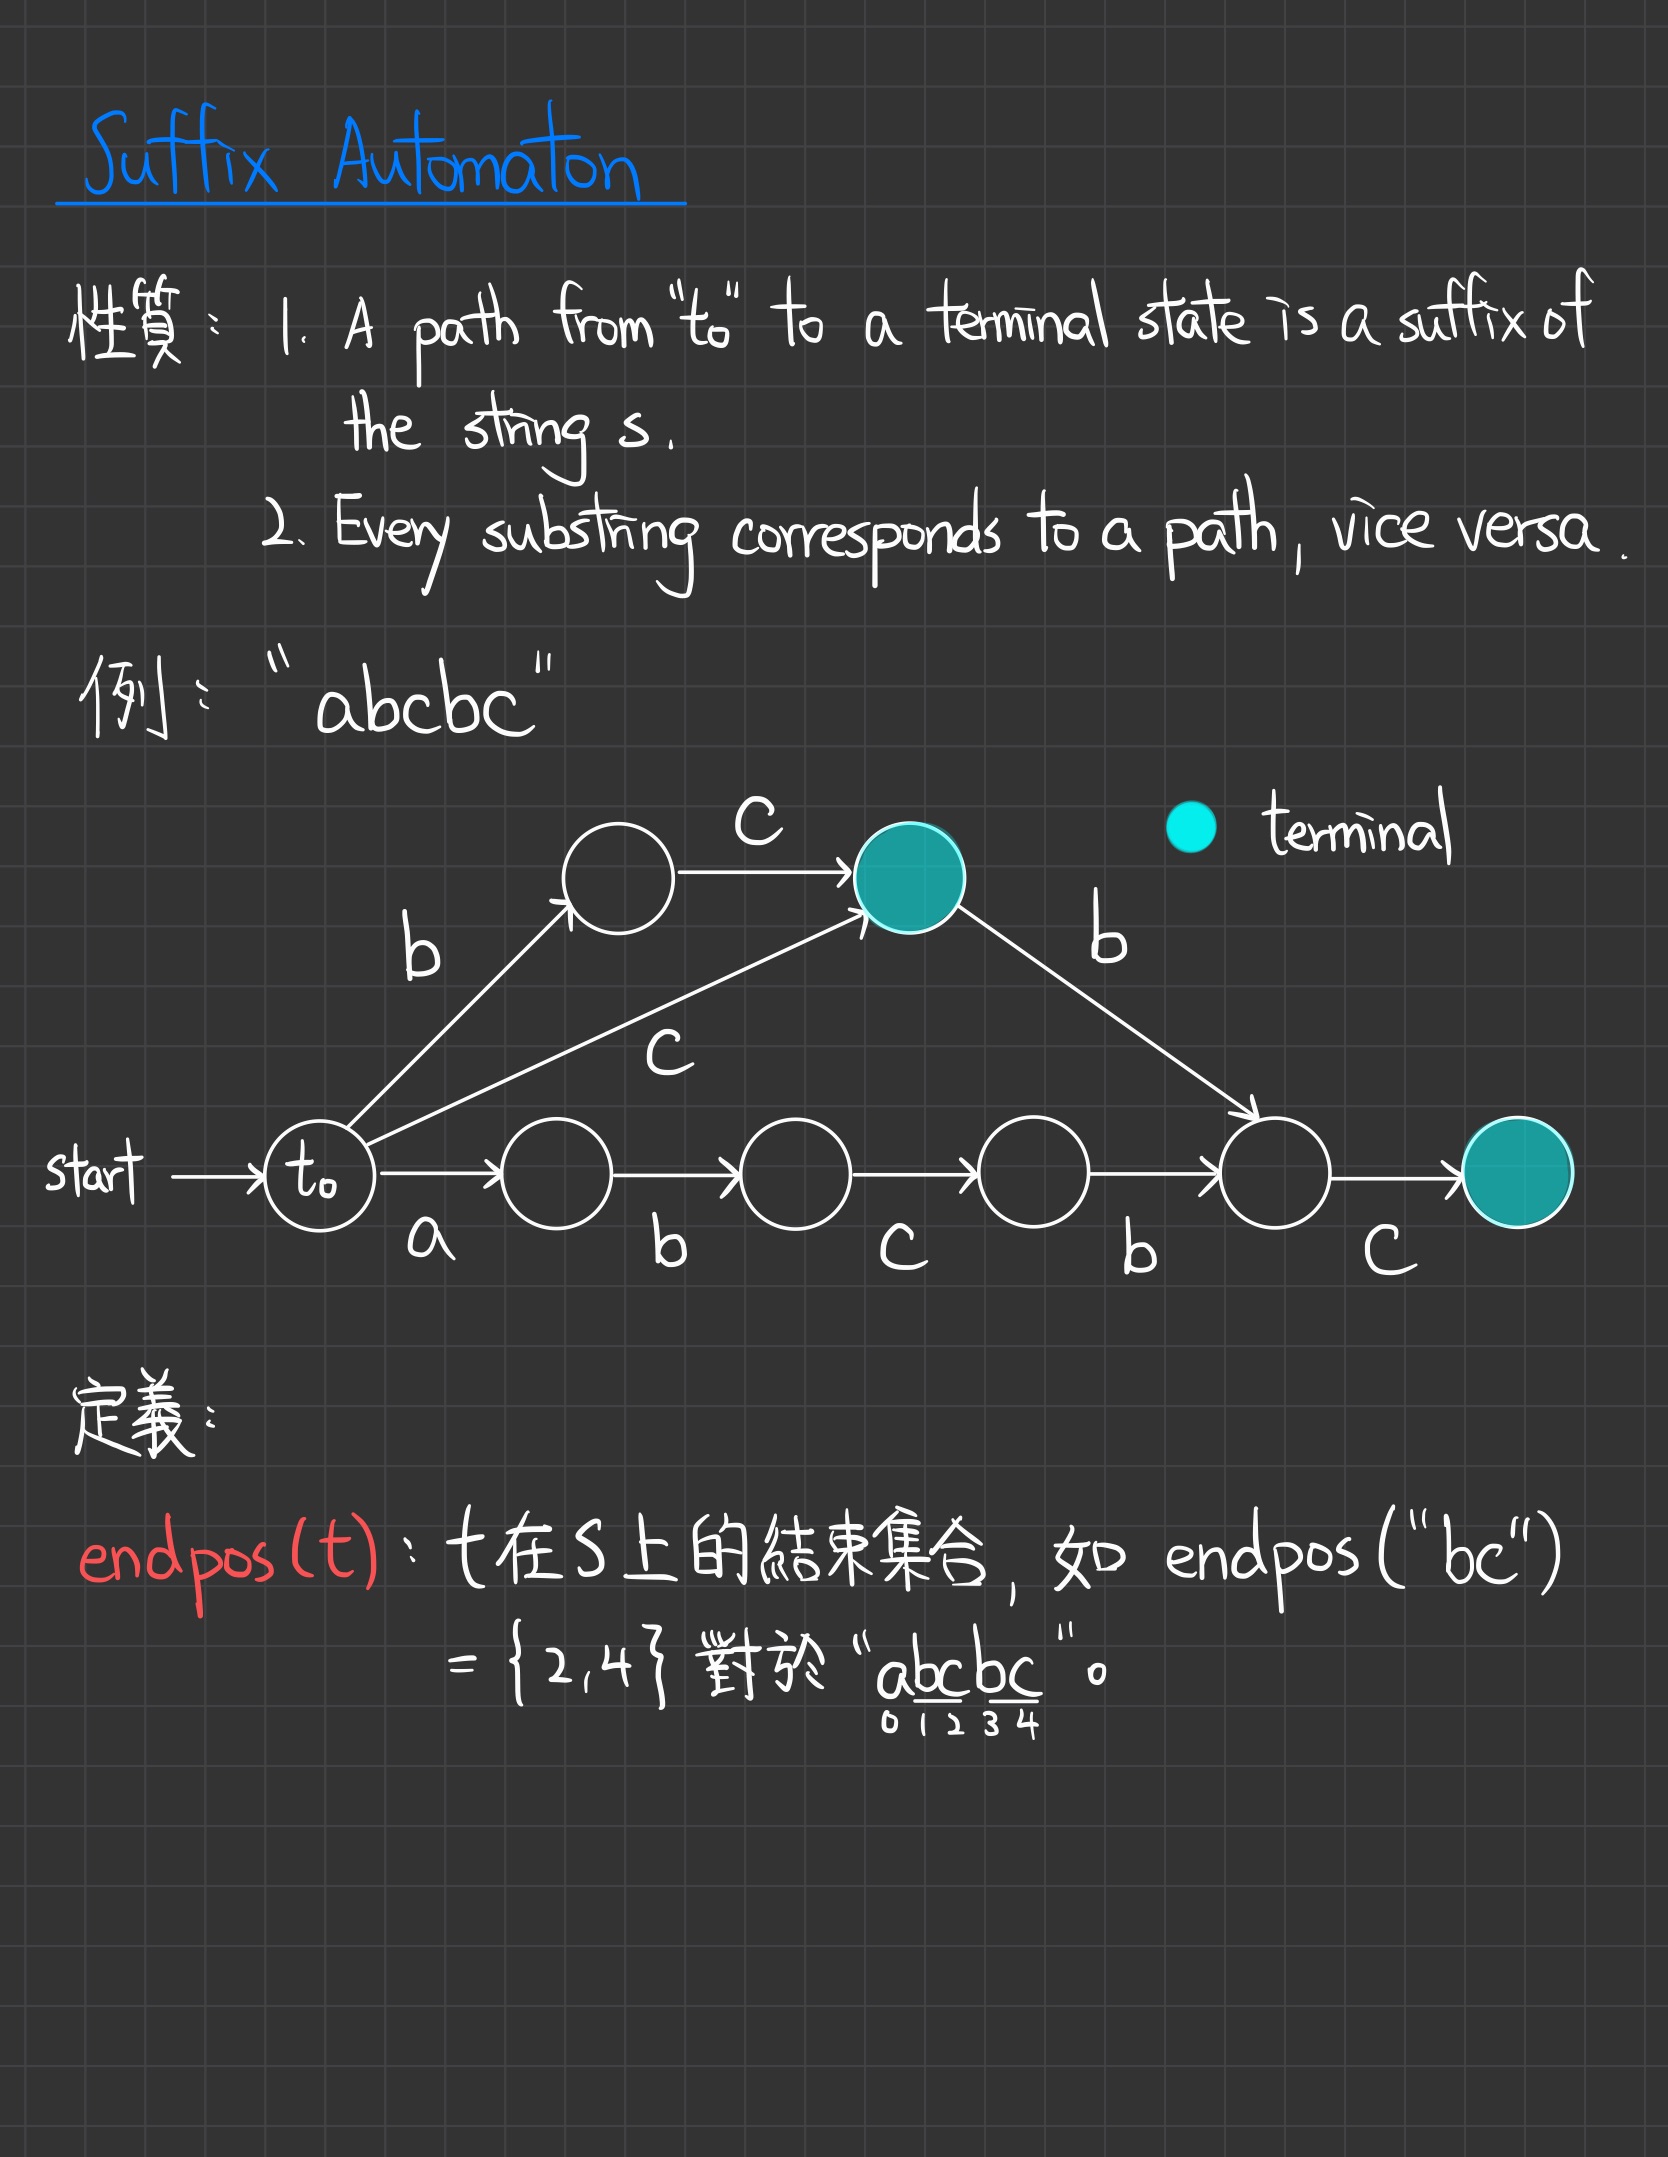 Suffix Automaton
性質: 1. A path from "t₀" to a terminal state is a suffix of
the string s.
2. Every substring corresponds to a path, vice versa.
例: "abcbc"
c
terminal
b
b
c
start
t₀
a
b
c
b
c
定義:
endpos(t): t在S上的結束集合, 如 endpos("bc")
= {2,4} 對於 "abcbc"。
0 1 2 3 4